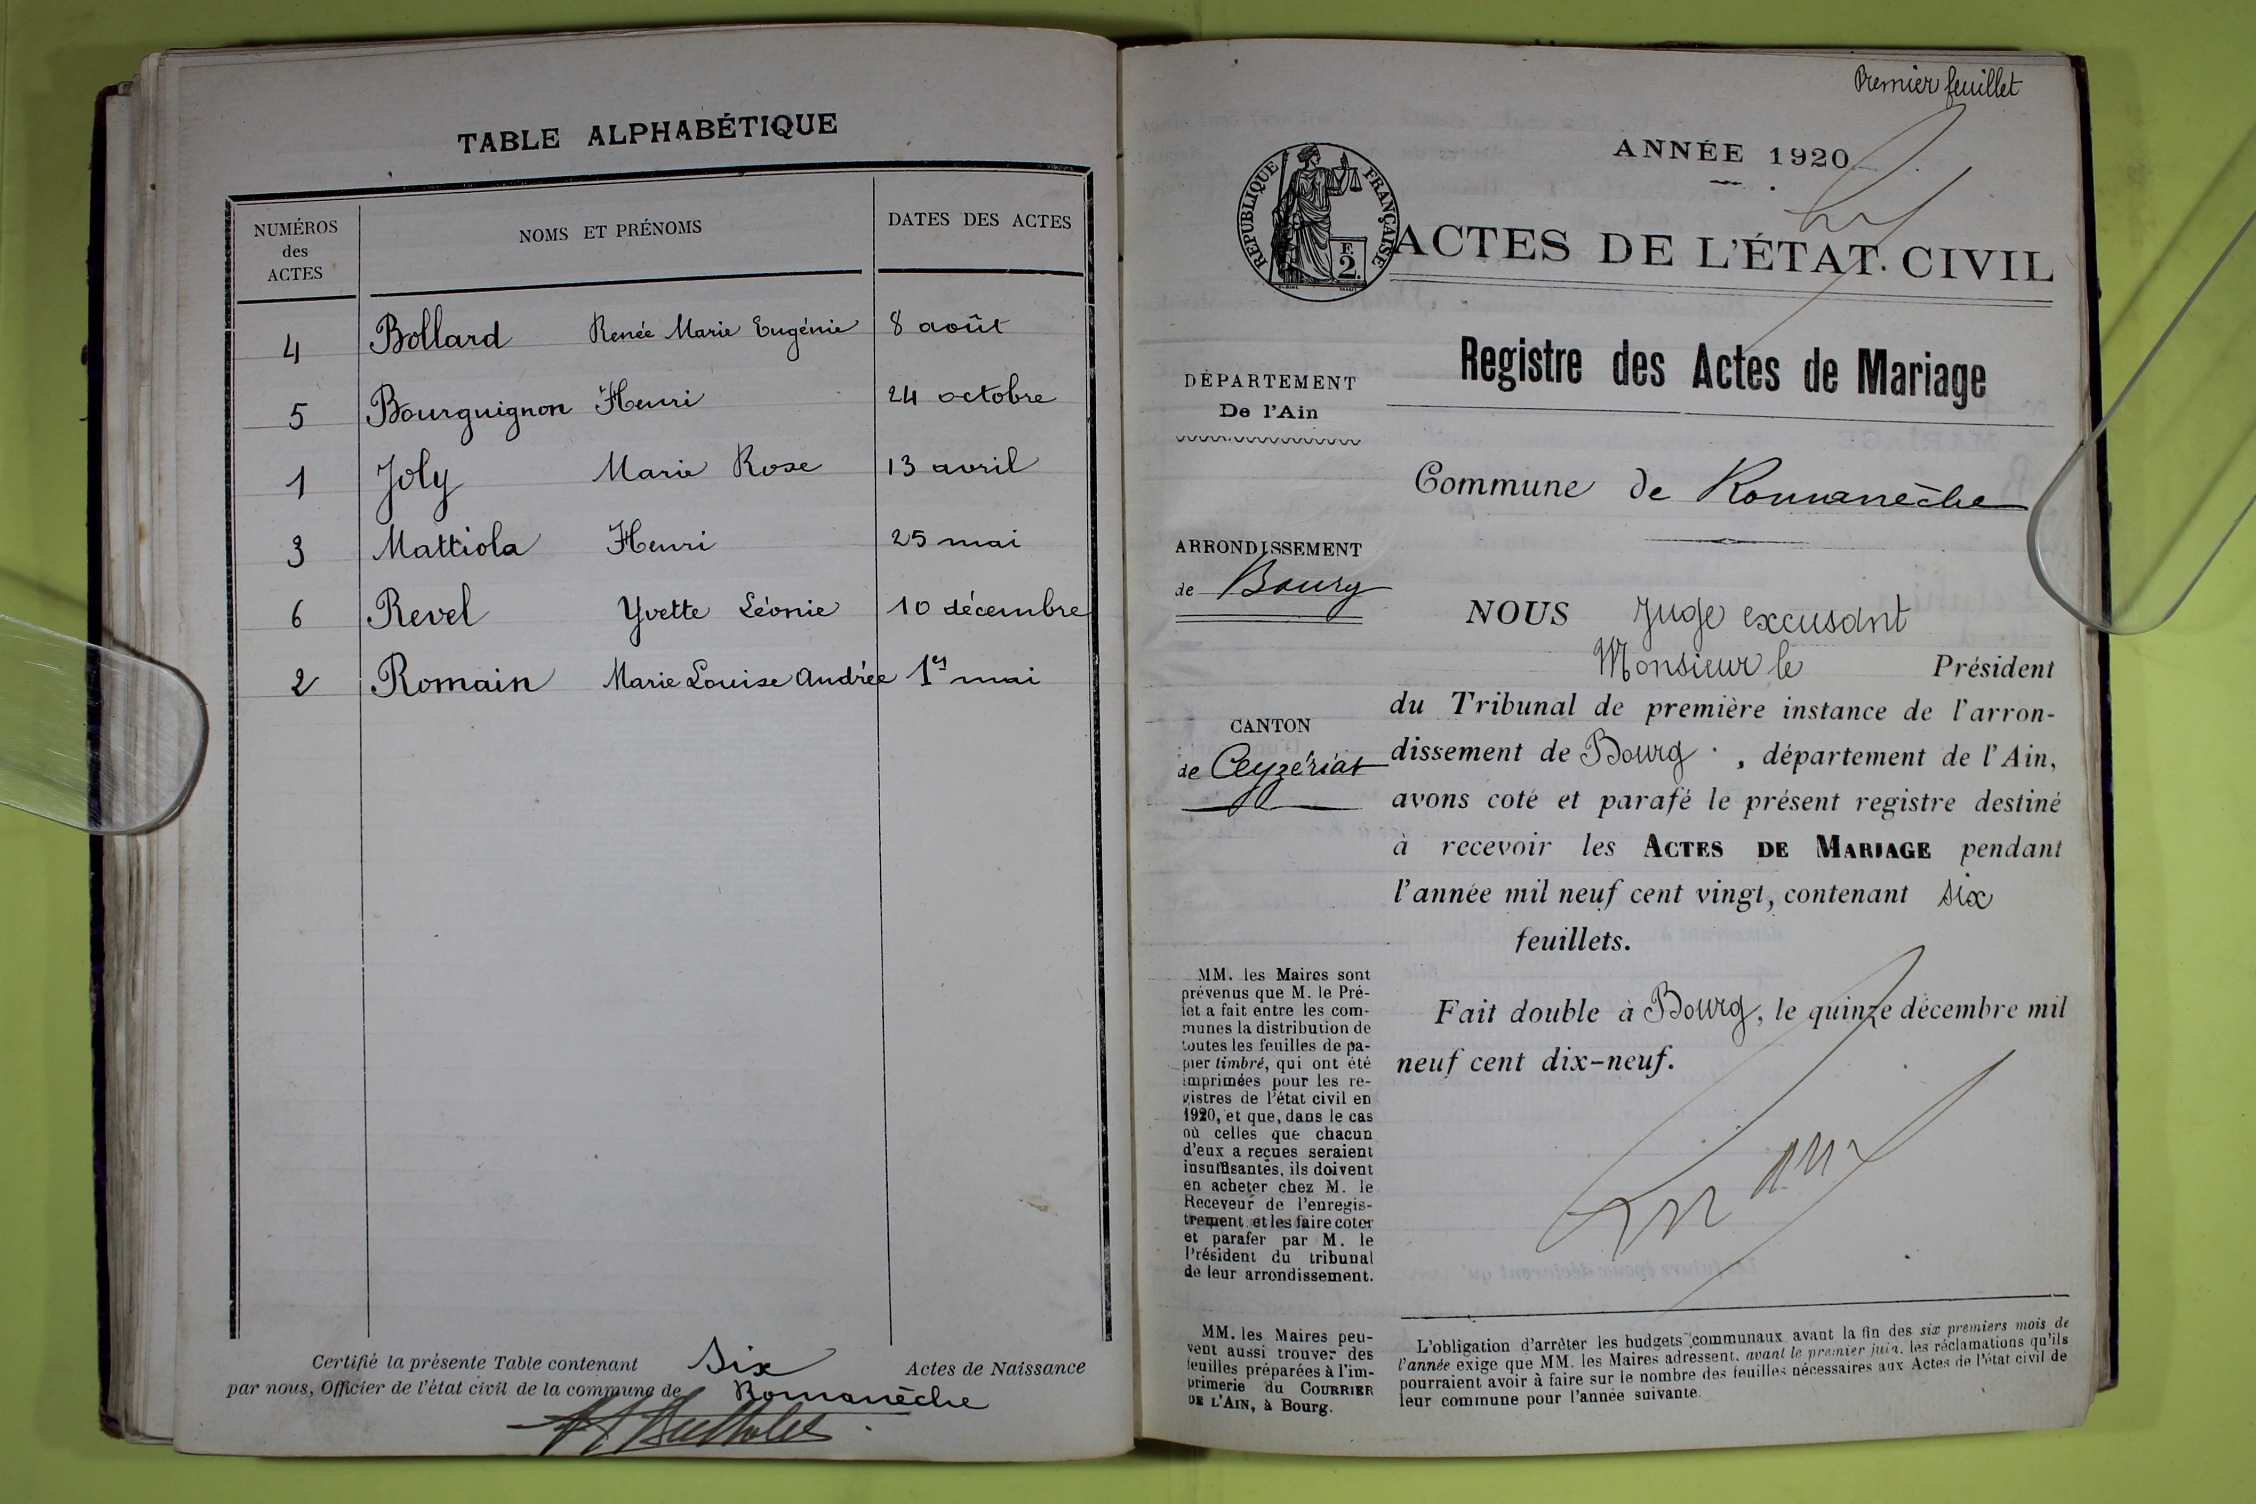 TABLE ALPHABÉTIQUE
NUMÉROS des ACTES
NOMS ET PRÉNOMS
DATES DES ACTES
4 Bollard Renée Marie Eugénie 8 août
5 Bourguignon Henri 24 octobre
1 Joly Marie Rose 13 avril
3 Mattiola Henri 25 mai
6 Revel Yvette Léonie 10 décembre
2 Romain Marie Louise Andrée 1er mai
Certifié la présente Table contenant six Actes de Naissance
par nous, Officier de l'état civil de la commune de Romanèche
Premier feuillet
ANNÉE 1920
RÉPUBLIQUE FRANÇAISE
F.
2.
ACTES DE L'ÉTAT CIVIL
Registre des Actes de Mariage
DÉPARTEMENT
De l'Ain
Commune de Romanèche
ARRONDISSEMENT
de Bourg
CANTON
de Ceyzériat
NOUS Juge excusant
Monsieur le Président
du Tribunal de première instance de l'arron-
dissement de Bourg, département de l'Ain,
avons coté et parafé le présent registre destiné
à recevoir les ACTES DE MARIAGE pendant
l'année mil neuf cent vingt, contenant six
feuillets.
Fait double à Bourg, le quinze décembre mil
neuf cent dix-neuf.
MM. les Maires sont
prévenus que M. le Pré-
fet a fait entre les com-
munes la distribution de
toutes les feuilles de pa-
pier timbré, qui ont été
imprimées pour les re-
gistres de l'état civil en
1920, et que, dans le cas
où celles que chacun
d'eux a reçues seraient
insuffisantes, ils doivent
en acheter chez M. le
Receveur de l'enregis-
trement et les faire coter
et parafer par M. le
Président du tribunal
de leur arrondissement.
MM. les Maires peu-
vent aussi trouver des
feuilles préparées à l'im-
primerie du COURRIER
DE L'AIN, à Bourg.
L'obligation d'arrêter les budgets communaux avant la fin des six premiers mois de
l'année exige que MM. les Maires adressent, avant le premier juin, les réclamations qu'ils
pourraient avoir à faire sur le nombre des feuilles nécessaires aux Actes de l'état civil de
leur commune pour l'année suivante.